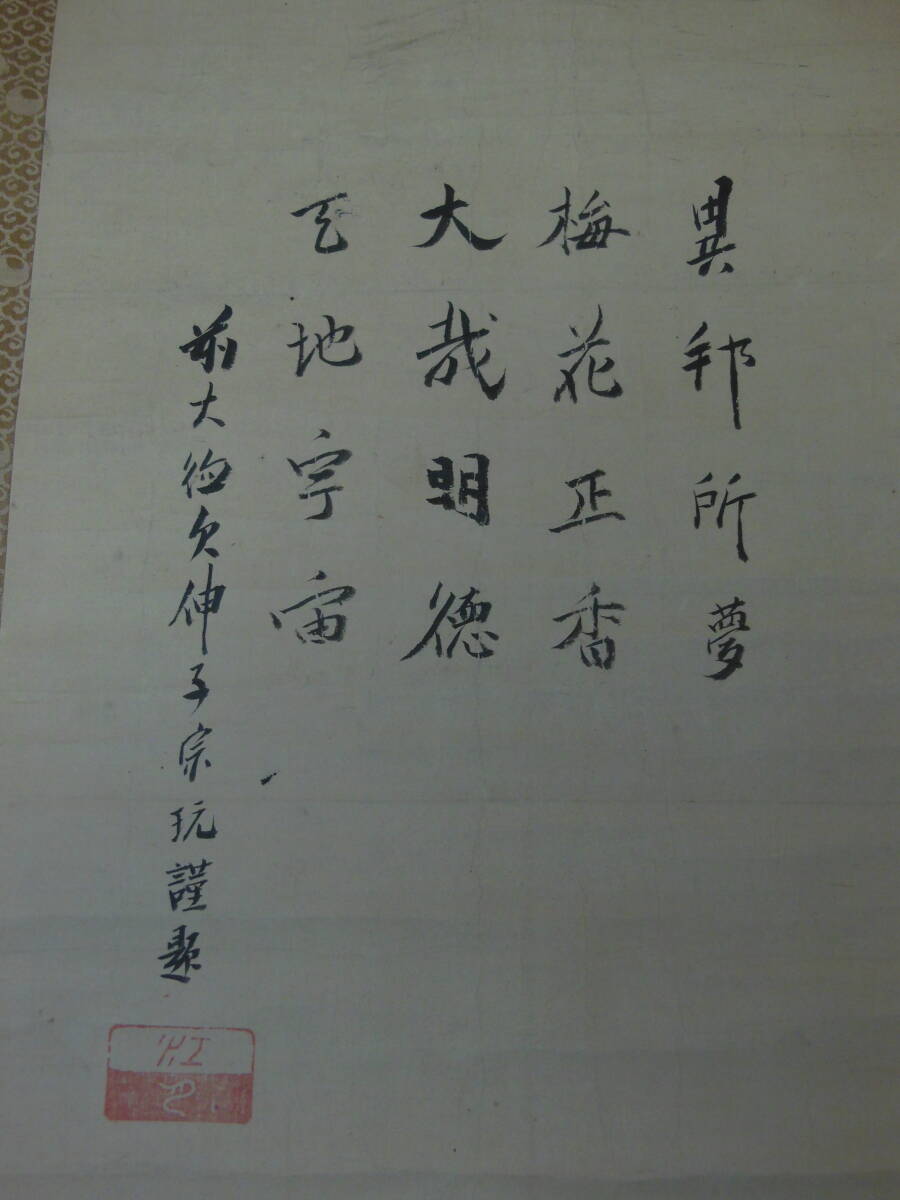 異邦所夢
梅花正香
大哉明德
天地宇宙
前大德欠伸子宗玩謹題
江月